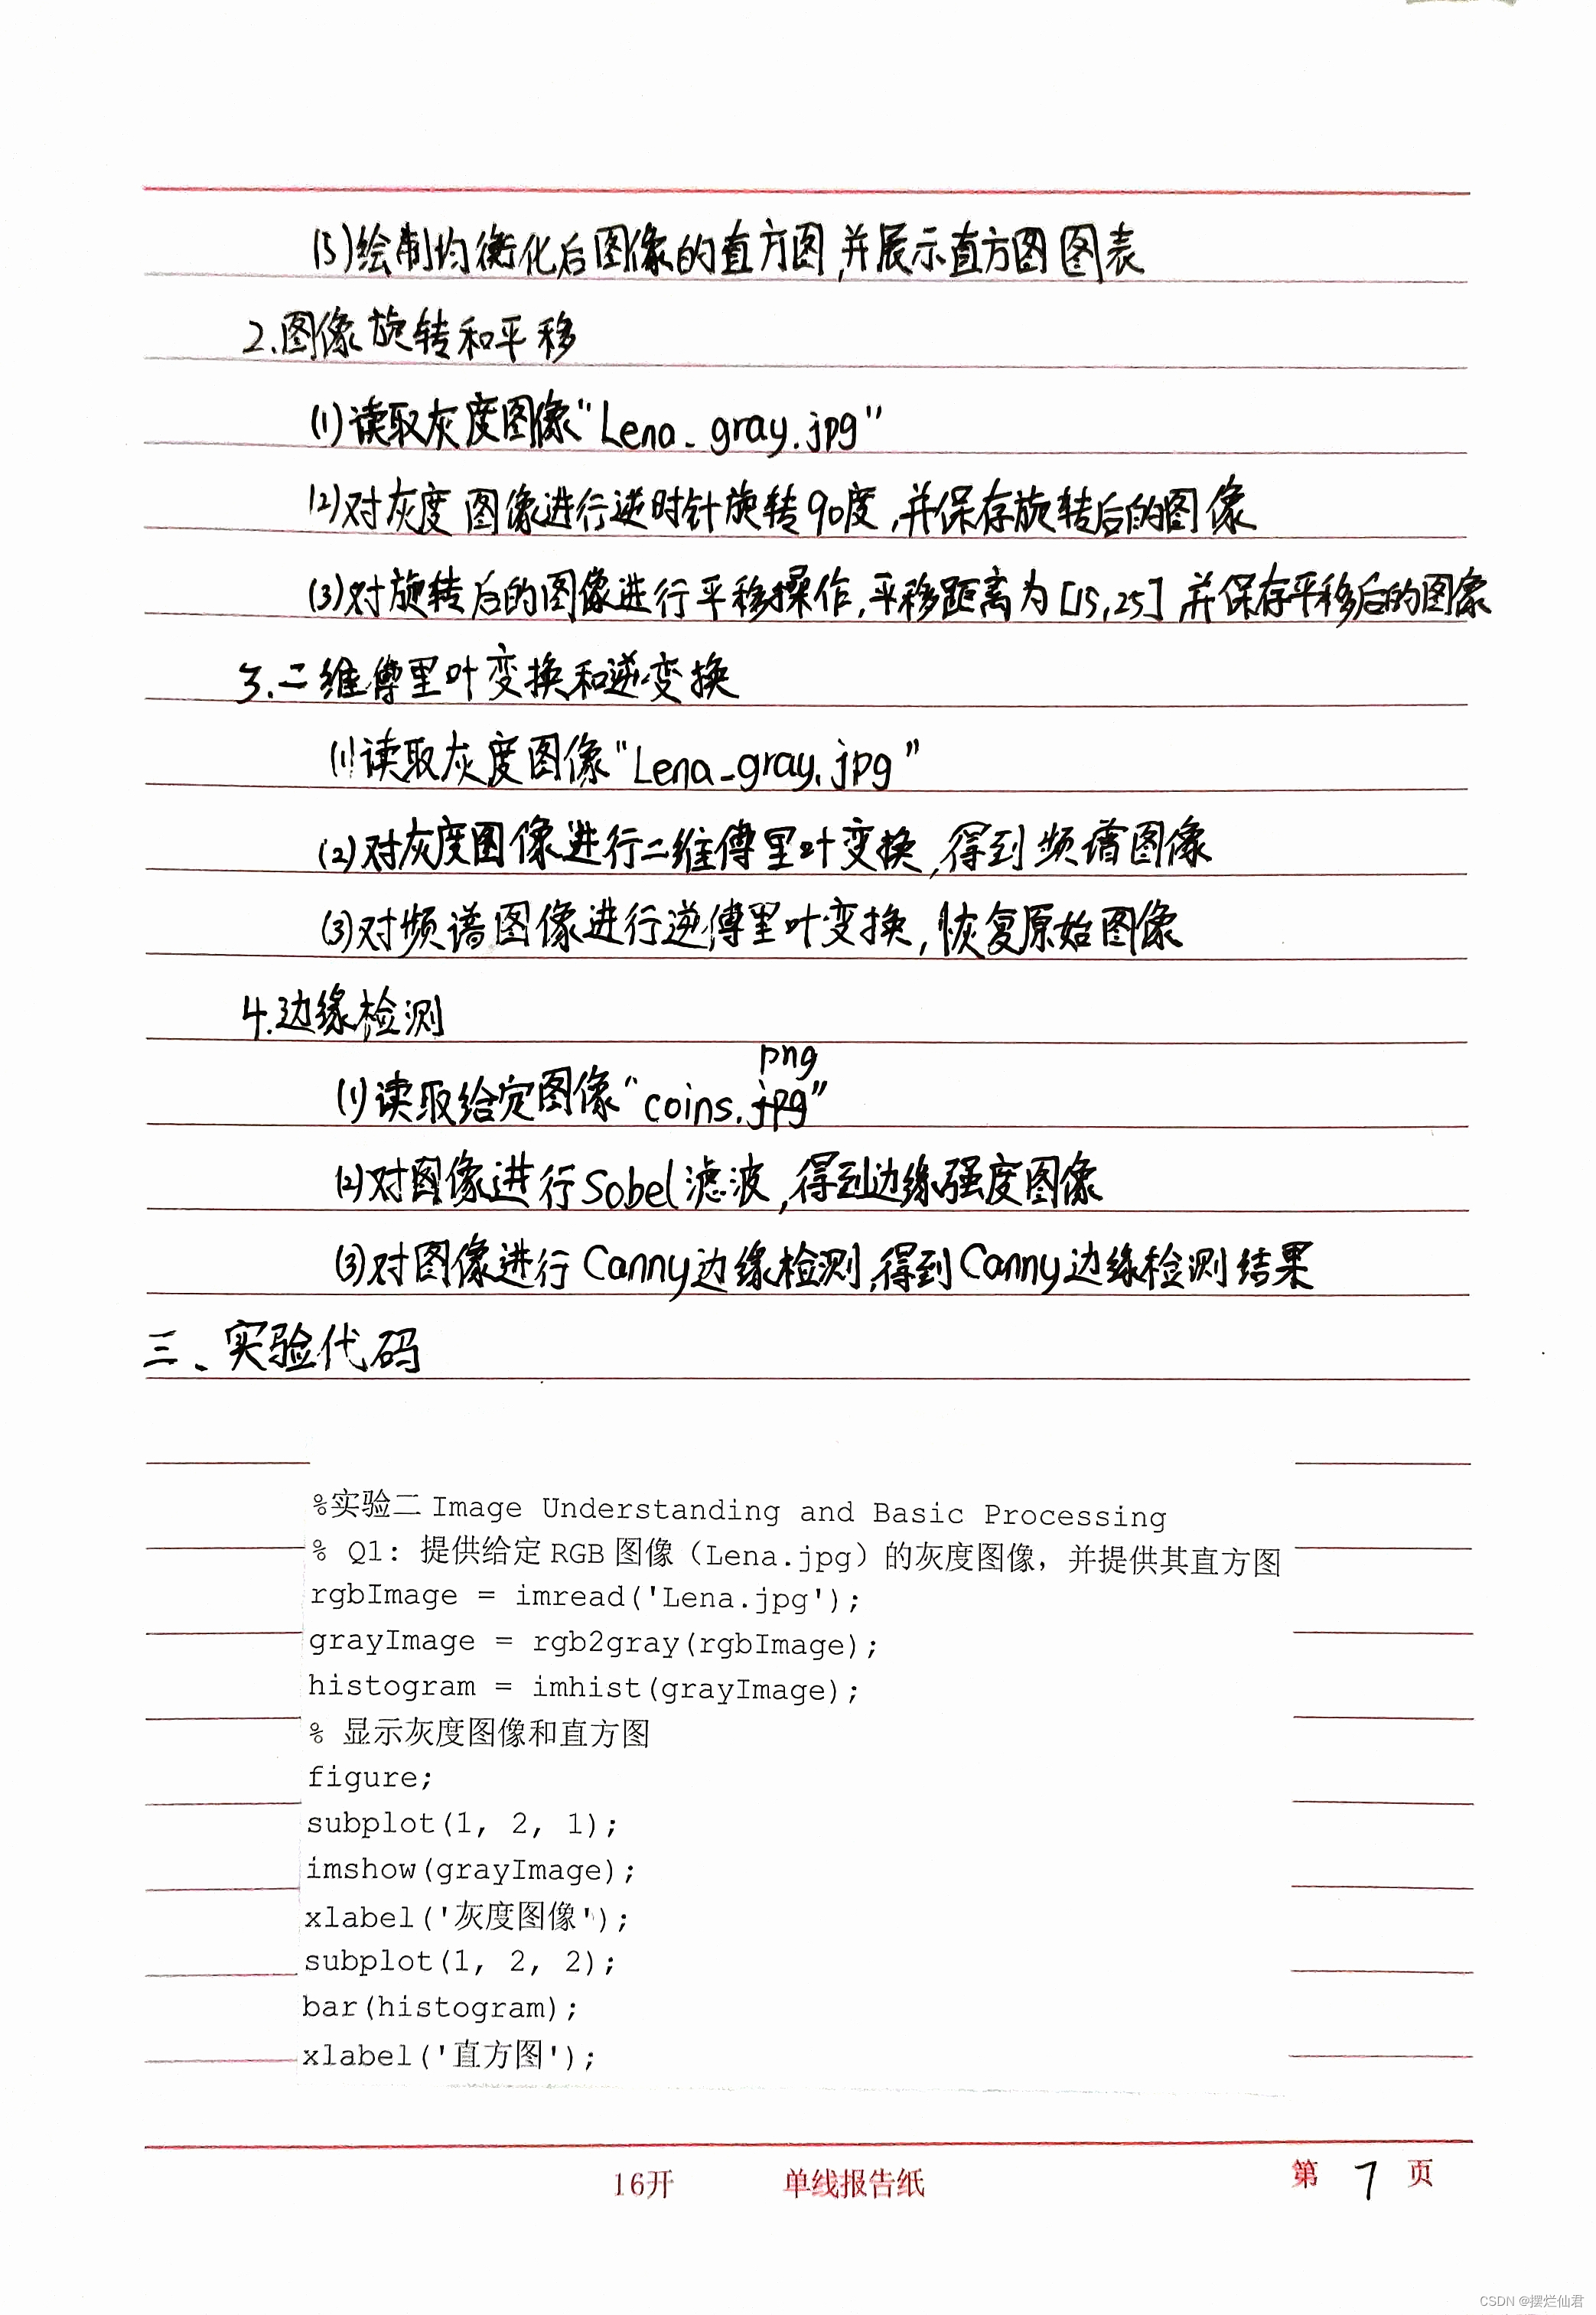 (5)绘制均衡化后图像的直方图,并展示直方图图表
2.图像旋转和平移
(1)读取灰度图像“Lena_gray.jpg”
(2)对灰度图像进行逆时针旋转90度,并保存旋转后的图像
(3)对旋转后的图像进行平移操作,平移距离为[15,25]并保存平移后的图像
3.二维傅里叶变换和逆变换
(1)读取灰度图像“Lena_gray.jpg”
(2)对灰度图像进行二维傅里叶变换,得到频谱图像
(3)对频谱图像进行逆傅里叶变换,恢复原始图像
4.边缘检测
png
(1)读取给定图像“coins.jpg”
(2)对图像进行Sobel滤波,得到边缘强度图像
(3)对图像进行Canny边缘检测,得到Canny边缘检测结果
三、实验代码
%实验二 Image Understanding and Basic Processing
% Q1: 提供给定RGB图像（Lena.jpg）的灰度图像，并提供其直方图
rgbImage = imread('Lena.jpg');
grayImage = rgb2gray(rgbImage);
histogram = imhist(grayImage);
% 显示灰度图像和直方图
figure;
subplot(1, 2, 1);
imshow(grayImage);
xlabel('灰度图像');
subplot(1, 2, 2);
bar(histogram);
xlabel('直方图');
16开 单线报告纸 第 7 页
CSDN @摆烂仙君